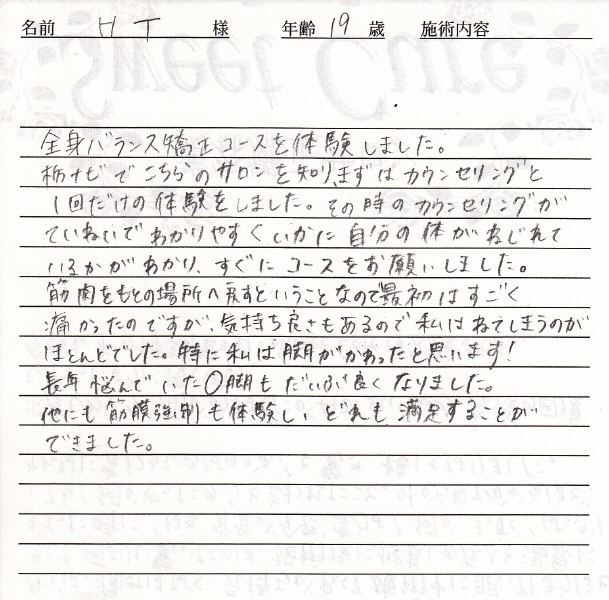 名前 H T 様 年齢 19 歳 施術内容
Sweet Cure
全身バランス矯正コースを体験しました。
栃ナビでこちらのサロンを知り、まずはカウンセリングと
1回だけの体験をしました。その時のカウンセリングが
ていねいでわかりやすくいかに自分の体がねじれて
いるかがわかり、すぐにコースをお願いしました。
筋肉をもとの場所へ戻すということなので最初はすごく
痛かったのですが、気持ち良さもあるので私はねてしまうのが
ほとんどでした。特に私は脚がかわったと思います!
長年悩んでいたO脚もだいぶ良くなりました。
他にも筋膜強制も体験し、どれも満足することが
できました。